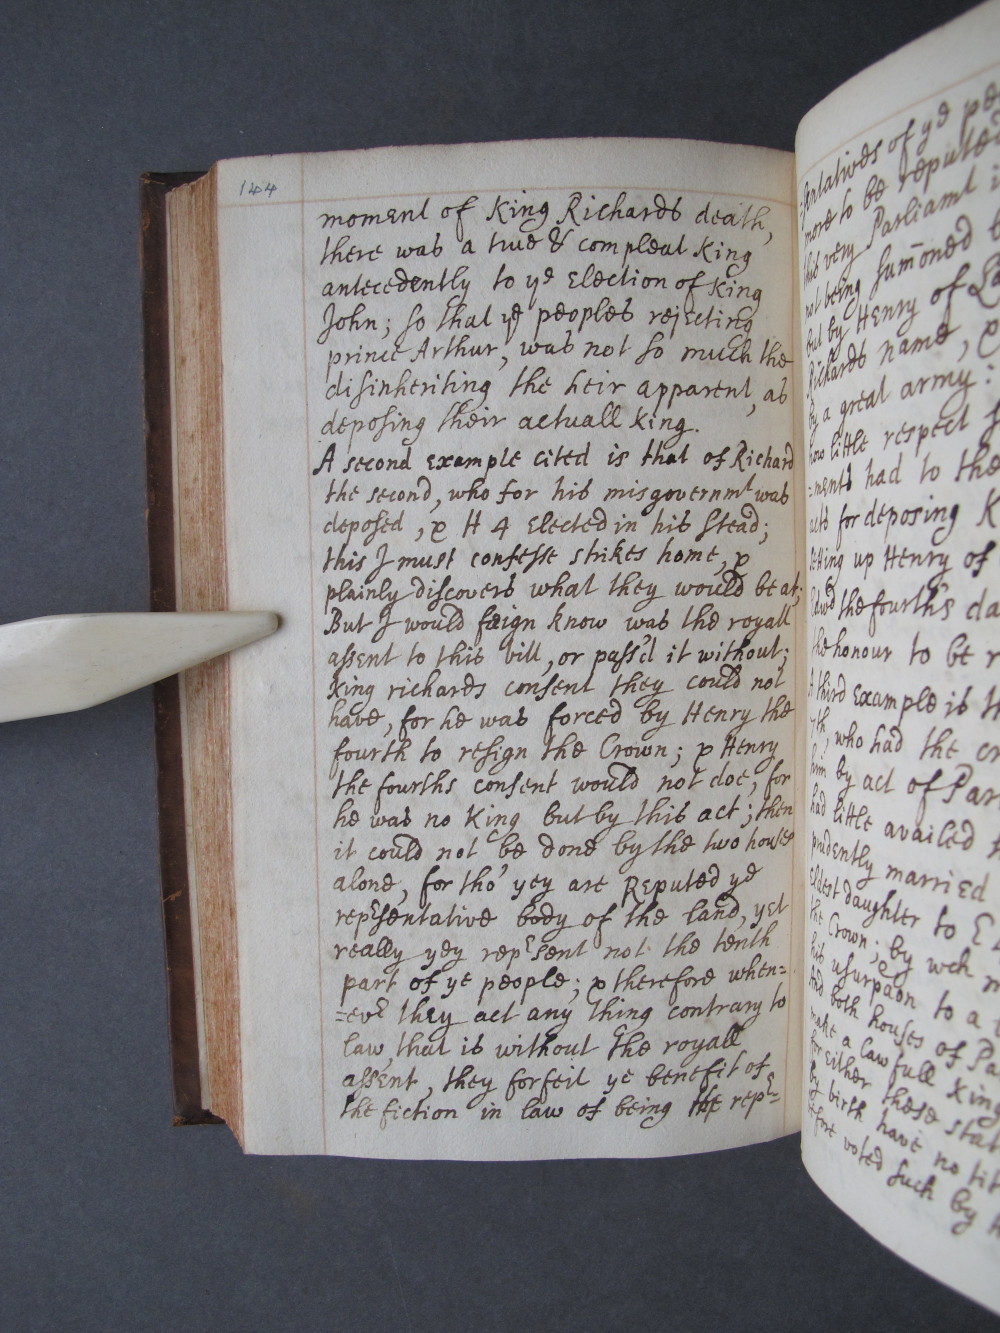 144
moment of King Richards death,
there was a true & compleat King
antecedently to ye Election of King
John; so that ye peoples rejecting
prince Arthur, was not so much the
disinheriting the heir apparent, as
deposing their actuall King.
A second example cited is that of Richard
the second, who for his misgovernmt was
deposed, & H 4 Elected in his stead;
this I must confesse strikes home, &
plainly discovers what they would be at;
But I would faign know was the royall
assent to this bill, or pass'd it without;
King richards consent they could not
have, for he was forced by Henry the
fourth to resign the Crown; & Henry
the fourths consent would not doe, for
he was no King but by this act; then
it could not be done by the two houses
alone, for tho' yey are Reputed ye
represéntative body of the land, yet
really yey represent not the tenth
part of ye people; & therefore when=
=evr they act any thing contrary to
law, that is without the royall
assent, they forfeit ye benefit of
the fiction in law of being the repr=
=sentatives of ye
more to be reputed
this very Parliamt
not being summoned
but by Henry of
Richards name, &
by a great army:
how little respect
=ments had to the
acts for deposing
setting up Henry of
Edwd the fourth's
the honour to be
A third Example is
7th, who had the
him by act of
had little availed
prudently married
Eldest daughter to
the Crown; by wch
his usurpaon to a
And both houses of
make a lawfull King
for Either these
by birth have no
before voted such by